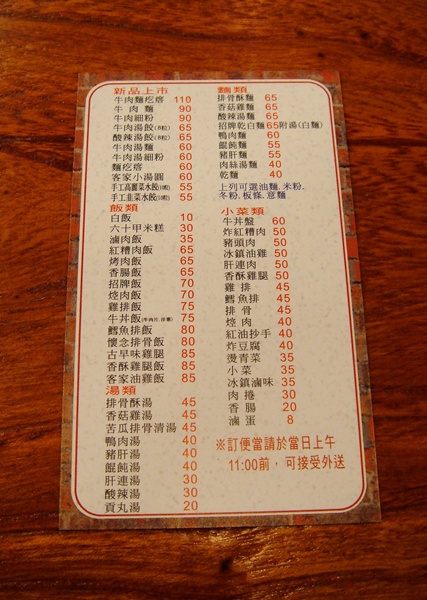 新品上市
牛肉麵疙瘩 110
牛肉麵 90
牛肉細粉 90
牛肉湯餃(8粒) 65
酸辣湯餃(8粒) 65
牛肉湯麵 60
牛肉湯細粉 60
麵疙瘩 60
客家小湯圓 60
手工高麗菜水餃(10粒) 55
手工韭菜水餃(10粒) 55
飯類
白飯 10
六十甲米糕 30
滷肉飯 35
紅糟肉飯 65
烤肉飯 65
香腸飯 65
招牌飯 70
焢肉飯 70
雞排飯 75
牛丼飯 75
鱈魚排飯 80
懷念排骨飯 80
古早味雞腿 85
香酥雞腿飯 85
客家油雞飯 85
湯類
排骨酥湯 45
香菇雞湯 45
苦瓜排骨清湯 45
鴨肉湯 40
豬肝湯 40
餛飩湯 40
肝連湯 30
酸辣湯 30
貢丸湯 20
麵類
排骨酥麵 65
香菇雞麵 65
酸辣湯麵 65
招牌乾白麵 65 附湯(白麵)
鴨肉麵 60
餛飩麵 55
豬肝麵 55
肉絲湯麵 40
乾麵 40
上列可選油麵.米粉.
冬粉.板條.意麵
小菜類
牛丼盤 60
炸紅糟肉 50
豬頭肉 50
冰鎮油雞 50
肝連肉 50
香酥雞腿 50
雞排 45
鱈魚排 45
排骨 45
焢肉 40
紅油抄手 40
炸豆腐 40
燙青菜 35
小菜 35
冰鎮滷味 35
肉捲 30
香腸 20
滷蛋 8
※訂便當請於當日上午
11:00前，可接受外送